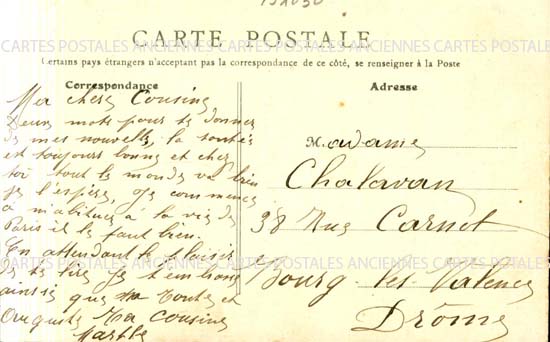 CARTE POSTALE
CARTES POSTALES ANCIENNES CARTES POSTALES ANCIENNES CARTES POSTALES
Certains pays étrangers n'acceptant pas la correspondance de ce côté, se renseigner à la Poste
Correspondance
Ma chere Cousine
Deux mots pour te donner
de mes nouvelle la santée
est toujours bonne et chez
toi tout le monde va bien
je l'espère, Je commence
a m'abituer à la vie de
Paris il le faut bien.
En attendant le plaisir
de te lire Je t'embrasse
ainsie que ma Tante et
Auguste Ta cousine
Marthe
Adresse
Madame
Chalavan
38 Rue Carnot
Bourg les Valence
Drôme